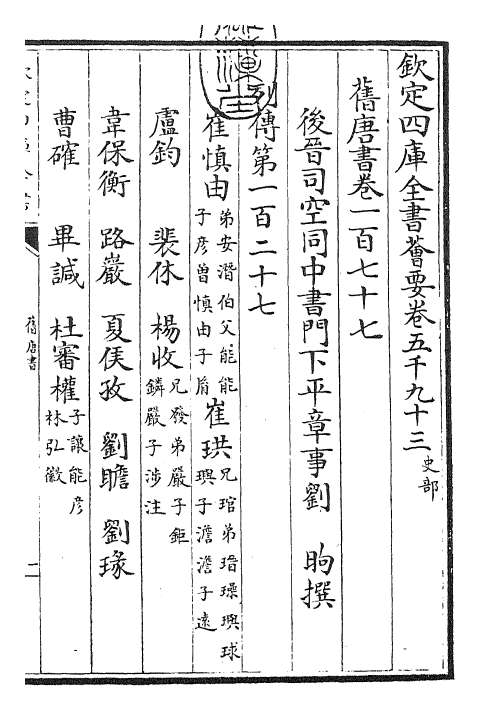 欽定四庫全書薈要卷五千九十三 史部
舊唐書卷一百七十七
後晉司空同中書門下平章事劉 昫撰
列傳第一百二十七
崔慎由 弟安潛 伯父能 能子彦曽 慎由子㣧 崔珙 兄琯 弟瑨 璪 璵 球 璵子澹 澹子遠
盧鈞 裴休 楊收 兄發 弟嚴 子鉅 鏻 嚴子涉 注
韋保衡 路巖 夏侯孜 劉瞻 劉瑑
曹確 畢諴 杜審權 子讓能 彦林 弘徽
舊唐書